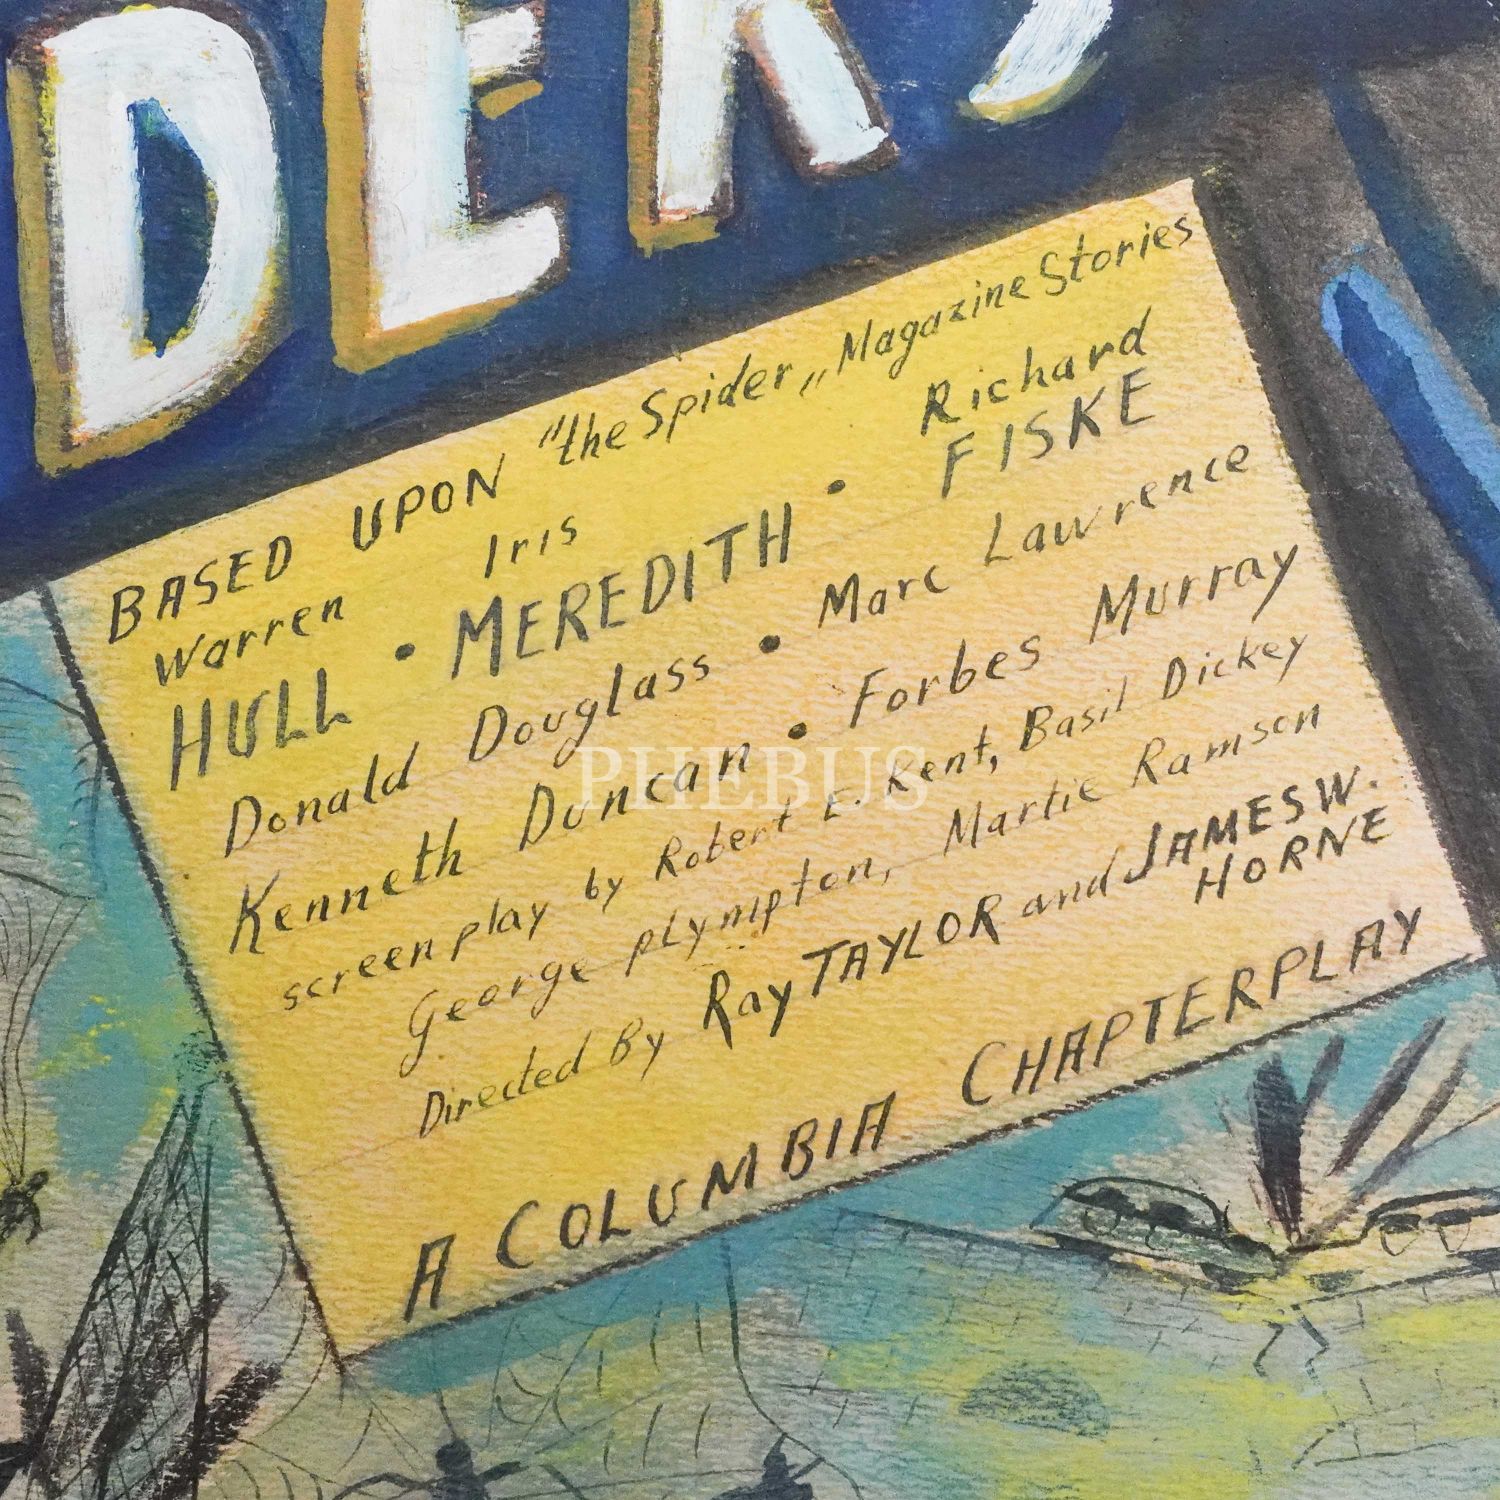 DERS
BASED UPON "the Spider„ Magazine Stories
Warren Iris Richard
HULL • MEREDITH • FISKE
Donald Douglass • Marc Lawrence
Kenneth Duncan • Forbes Murray
screenplay by Robert E. Kent, Basil Dickey
George pLympton, Martie Ramson
Directed By Ray TAYLOR and JAMES W.
HORNE
A COLUMBIA CHAPTERPLAY
PHEBUS